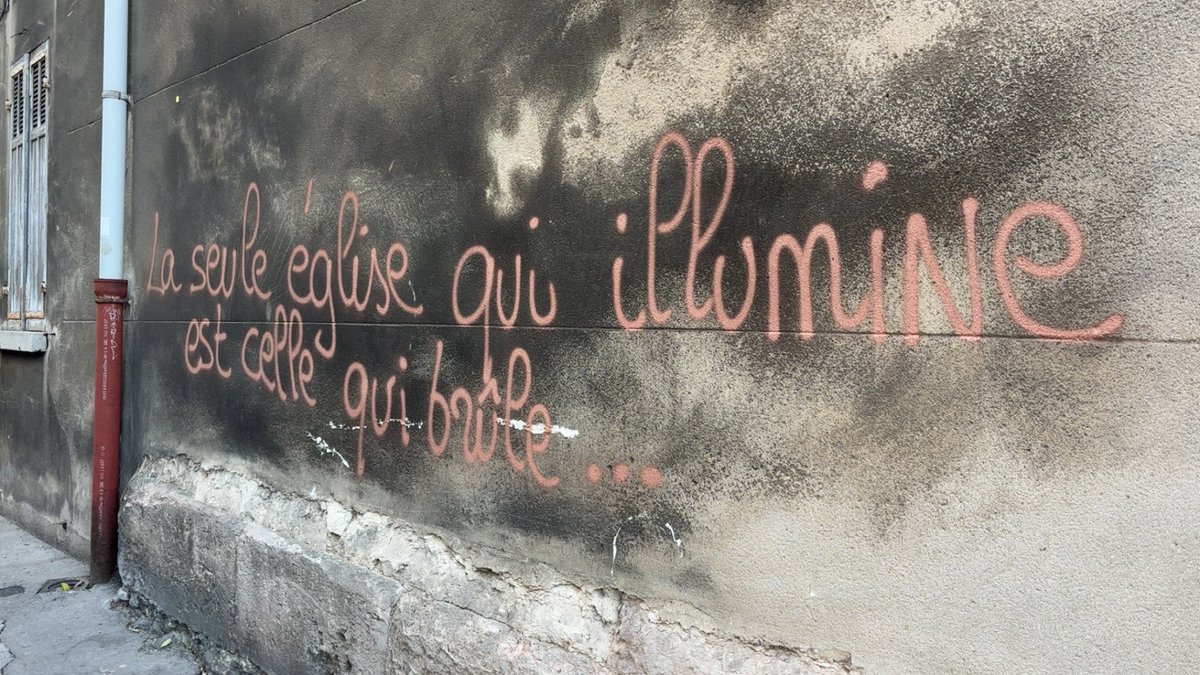 La seule église qui illumine
est celle qui brûle...